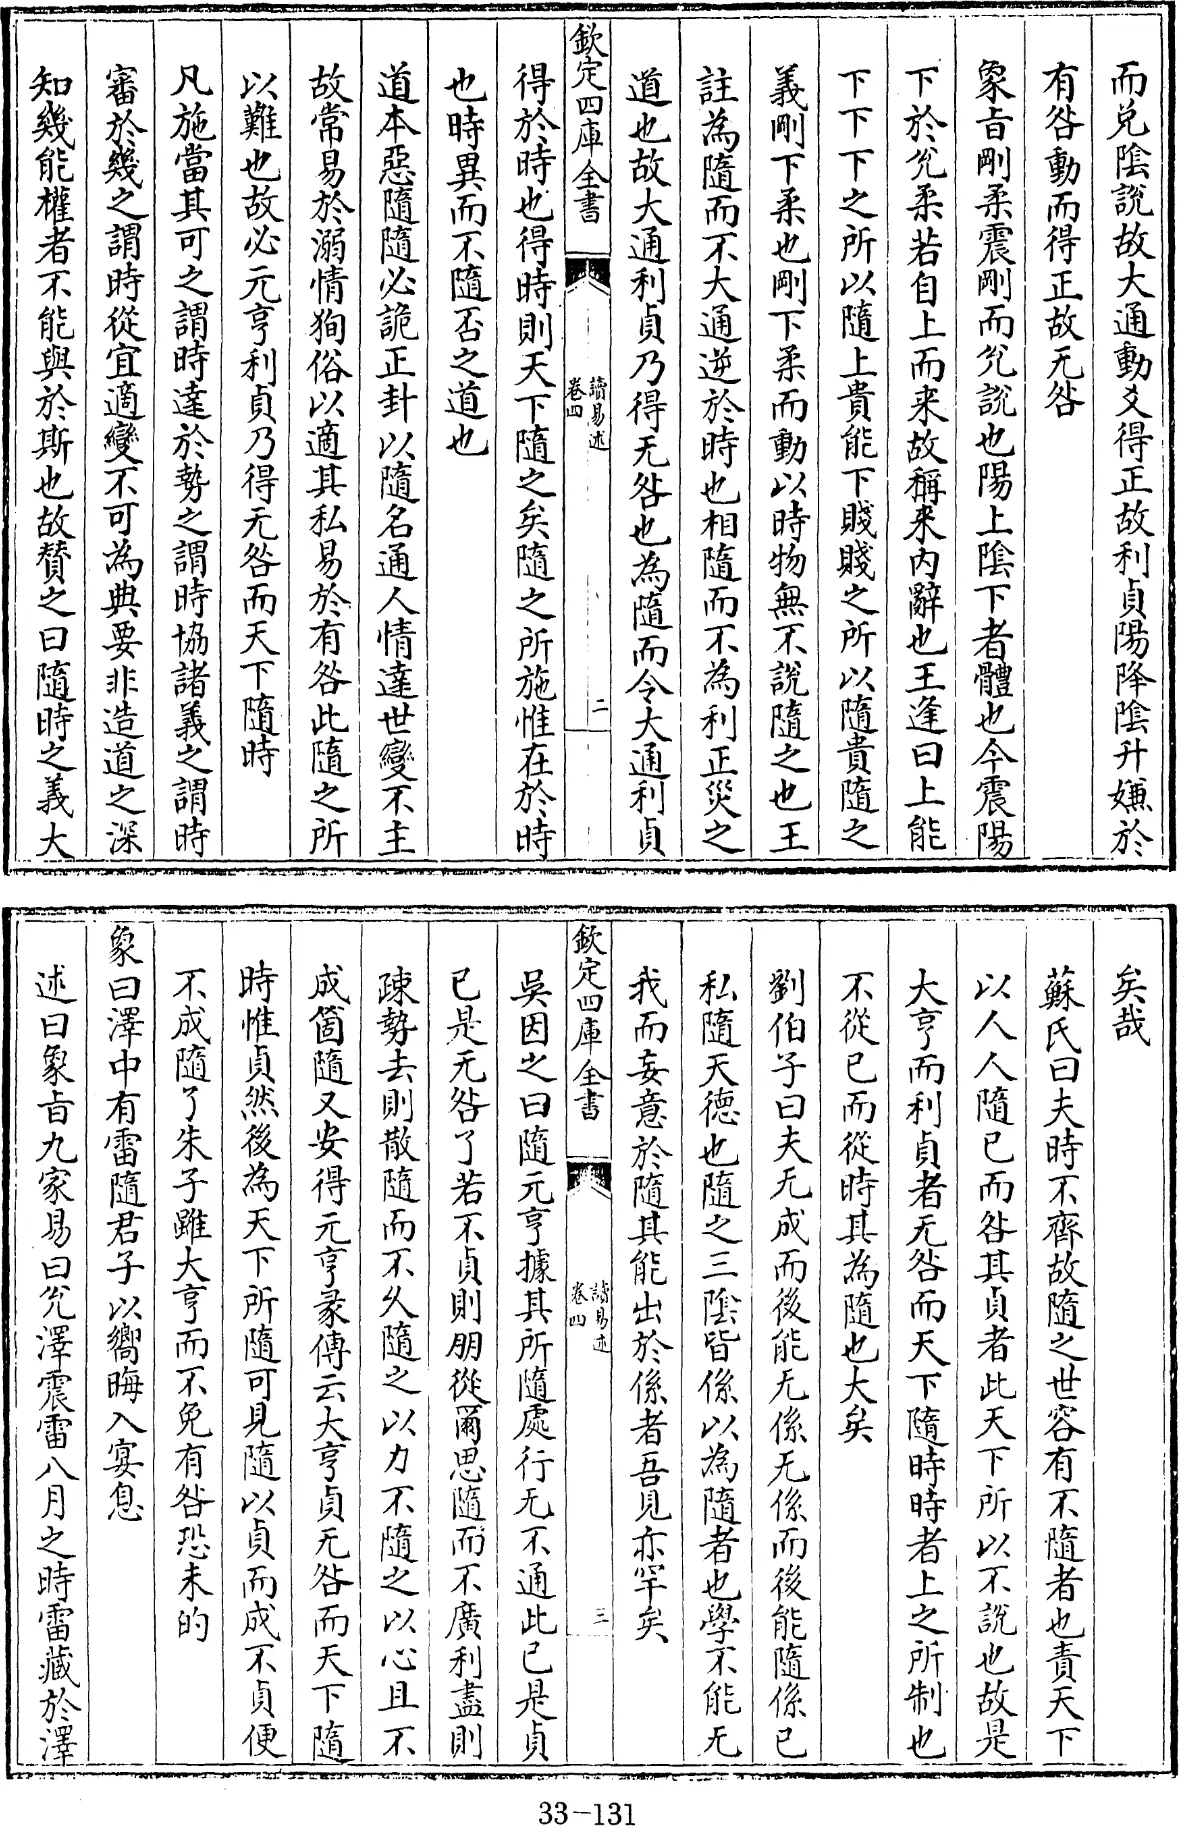 而兌陰說故大通動爻得正故利貞陽降陰升嫌於
有咎動而得正故无咎
象旨剛柔震剛而兌說也陽上陰下者體也今震陽
下於兌柔若自上而来故稱来内辭也王逢曰上能
下下下之所以隨上貴能下賤賤之所以隨貴隨之
義剛下柔也剛下柔而動以時物無不說隨之也王
註為隨而不大通逆於時也相隨而不為利正災之
道也故大通利貞乃得无咎也為隨而令大通利貞
欽定四庫全書
讀易述
卷四
二
得於時也得時則天下隨之矣隨之所施惟在於時
也時異而不隨否之道也
道本惡隨隨必詭正卦以隨名通人情達世變不主
故常易於溺情狥俗以適其私易於有咎此隨之所
以難也故必元亨利貞乃得无咎而天下隨時
凡施當其可之謂時達於勢之謂時協諸義之謂時
審於幾之謂時從宜適變不可為典要非造道之深
知幾能權者不能與於斯也故賛之曰隨時之義大
矣哉
蘇氏曰夫時不齊故隨之世容有不隨者也責天下
以人人隨已而咎其貞者此天下所以不說也故是
大亨而利貞者无咎而天下隨時時者上之所制也
不從已而從時其為隨也大矣
劉伯子曰夫无成而後能无係无係而後能隨係已
私隨天德也隨之三陰皆係以為隨者也學不能无
我而妄意於隨其能出於係者吾見亦罕矣
欽定四庫全書
讀易述
卷四
三
吳因之曰隨元亨據其所隨處行无不通此已是貞
已是无咎了若不貞則朋從爾思隨而不廣利盡則
疎勢去則散隨而不久隨之以力不隨之以心且不
成箇隨又安得元亨彖傳云大亨貞无咎而天下隨
時惟貞然後為天下所隨可見隨以貞而成不貞便
不成隨了朱子雖大亨而不免有咎恐未的
象曰澤中有雷隨君子以嚮晦入宴息
述曰象旨九家易曰兌澤震雷八月之時雷藏於澤
33-131